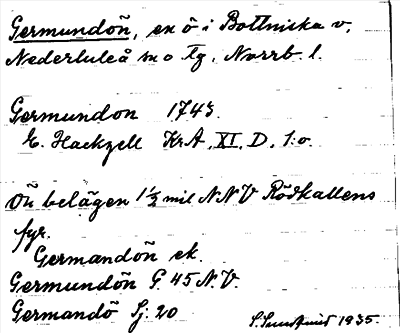 Germundöñ, en ö i Bottniska v,
Nederluleå sn o Tg, Norrb. l.
Germundon 1743.
E. Hackzell KrA, XI, D, 1:o.
Öñ belägen 1½ mil NNV Rödkallens
fyr.
Germandöñ ek.
Germundön G. 45 N.V.
Germandö Sj: 20
1935.